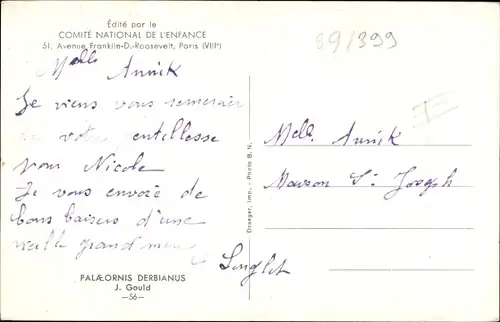 Édité par le
COMITÉ NATIONAL DE L'ENFANCE
51, Avenue Franklin-D.-Roosevelt, Paris (VIIIe)
89/399
Melle Annik
Je viens vous remercier
de votre gentillesse
pour Nicole
Je vous envoie de
bons baisers d'une
vieille grand mère
PALÆORNIS DERBIANUS
J. Gould
—56—
Draeger, Imp. - Photo B. N.
Melle Annik
Maison St Joseph